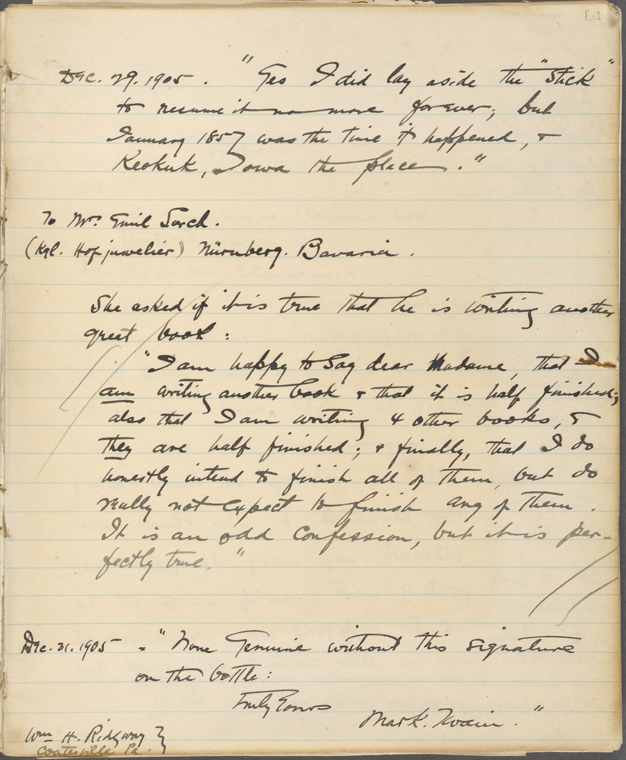 Dec. 29. 1905. "Yes I did lay aside the "Stick"
to resume it no more forever; but
January 1857 was the time it happened, &
Keokuk, Iowa the place."
To Mr. Emil
(Kgl. Hofjuwelier) Nürnberg. Bavaria.
She asked if it is true that he is writing another
great book:
"I am happy to say dear Madame, that I
am writing another book & that it is half finished;
also that I am writing 4 other books, &
they are half finished; & finally, that I do
honestly intend to finish all of them, but do
really not expect to finish any of them.
It is an odd confession, but it is per-
fectly true."
Dec. 31. 1905 - "None Genuine without this signature
on the bottle:
Truly Yours
Mark Twain."
Wm H. Ridgway }
Coatesville Pa. }